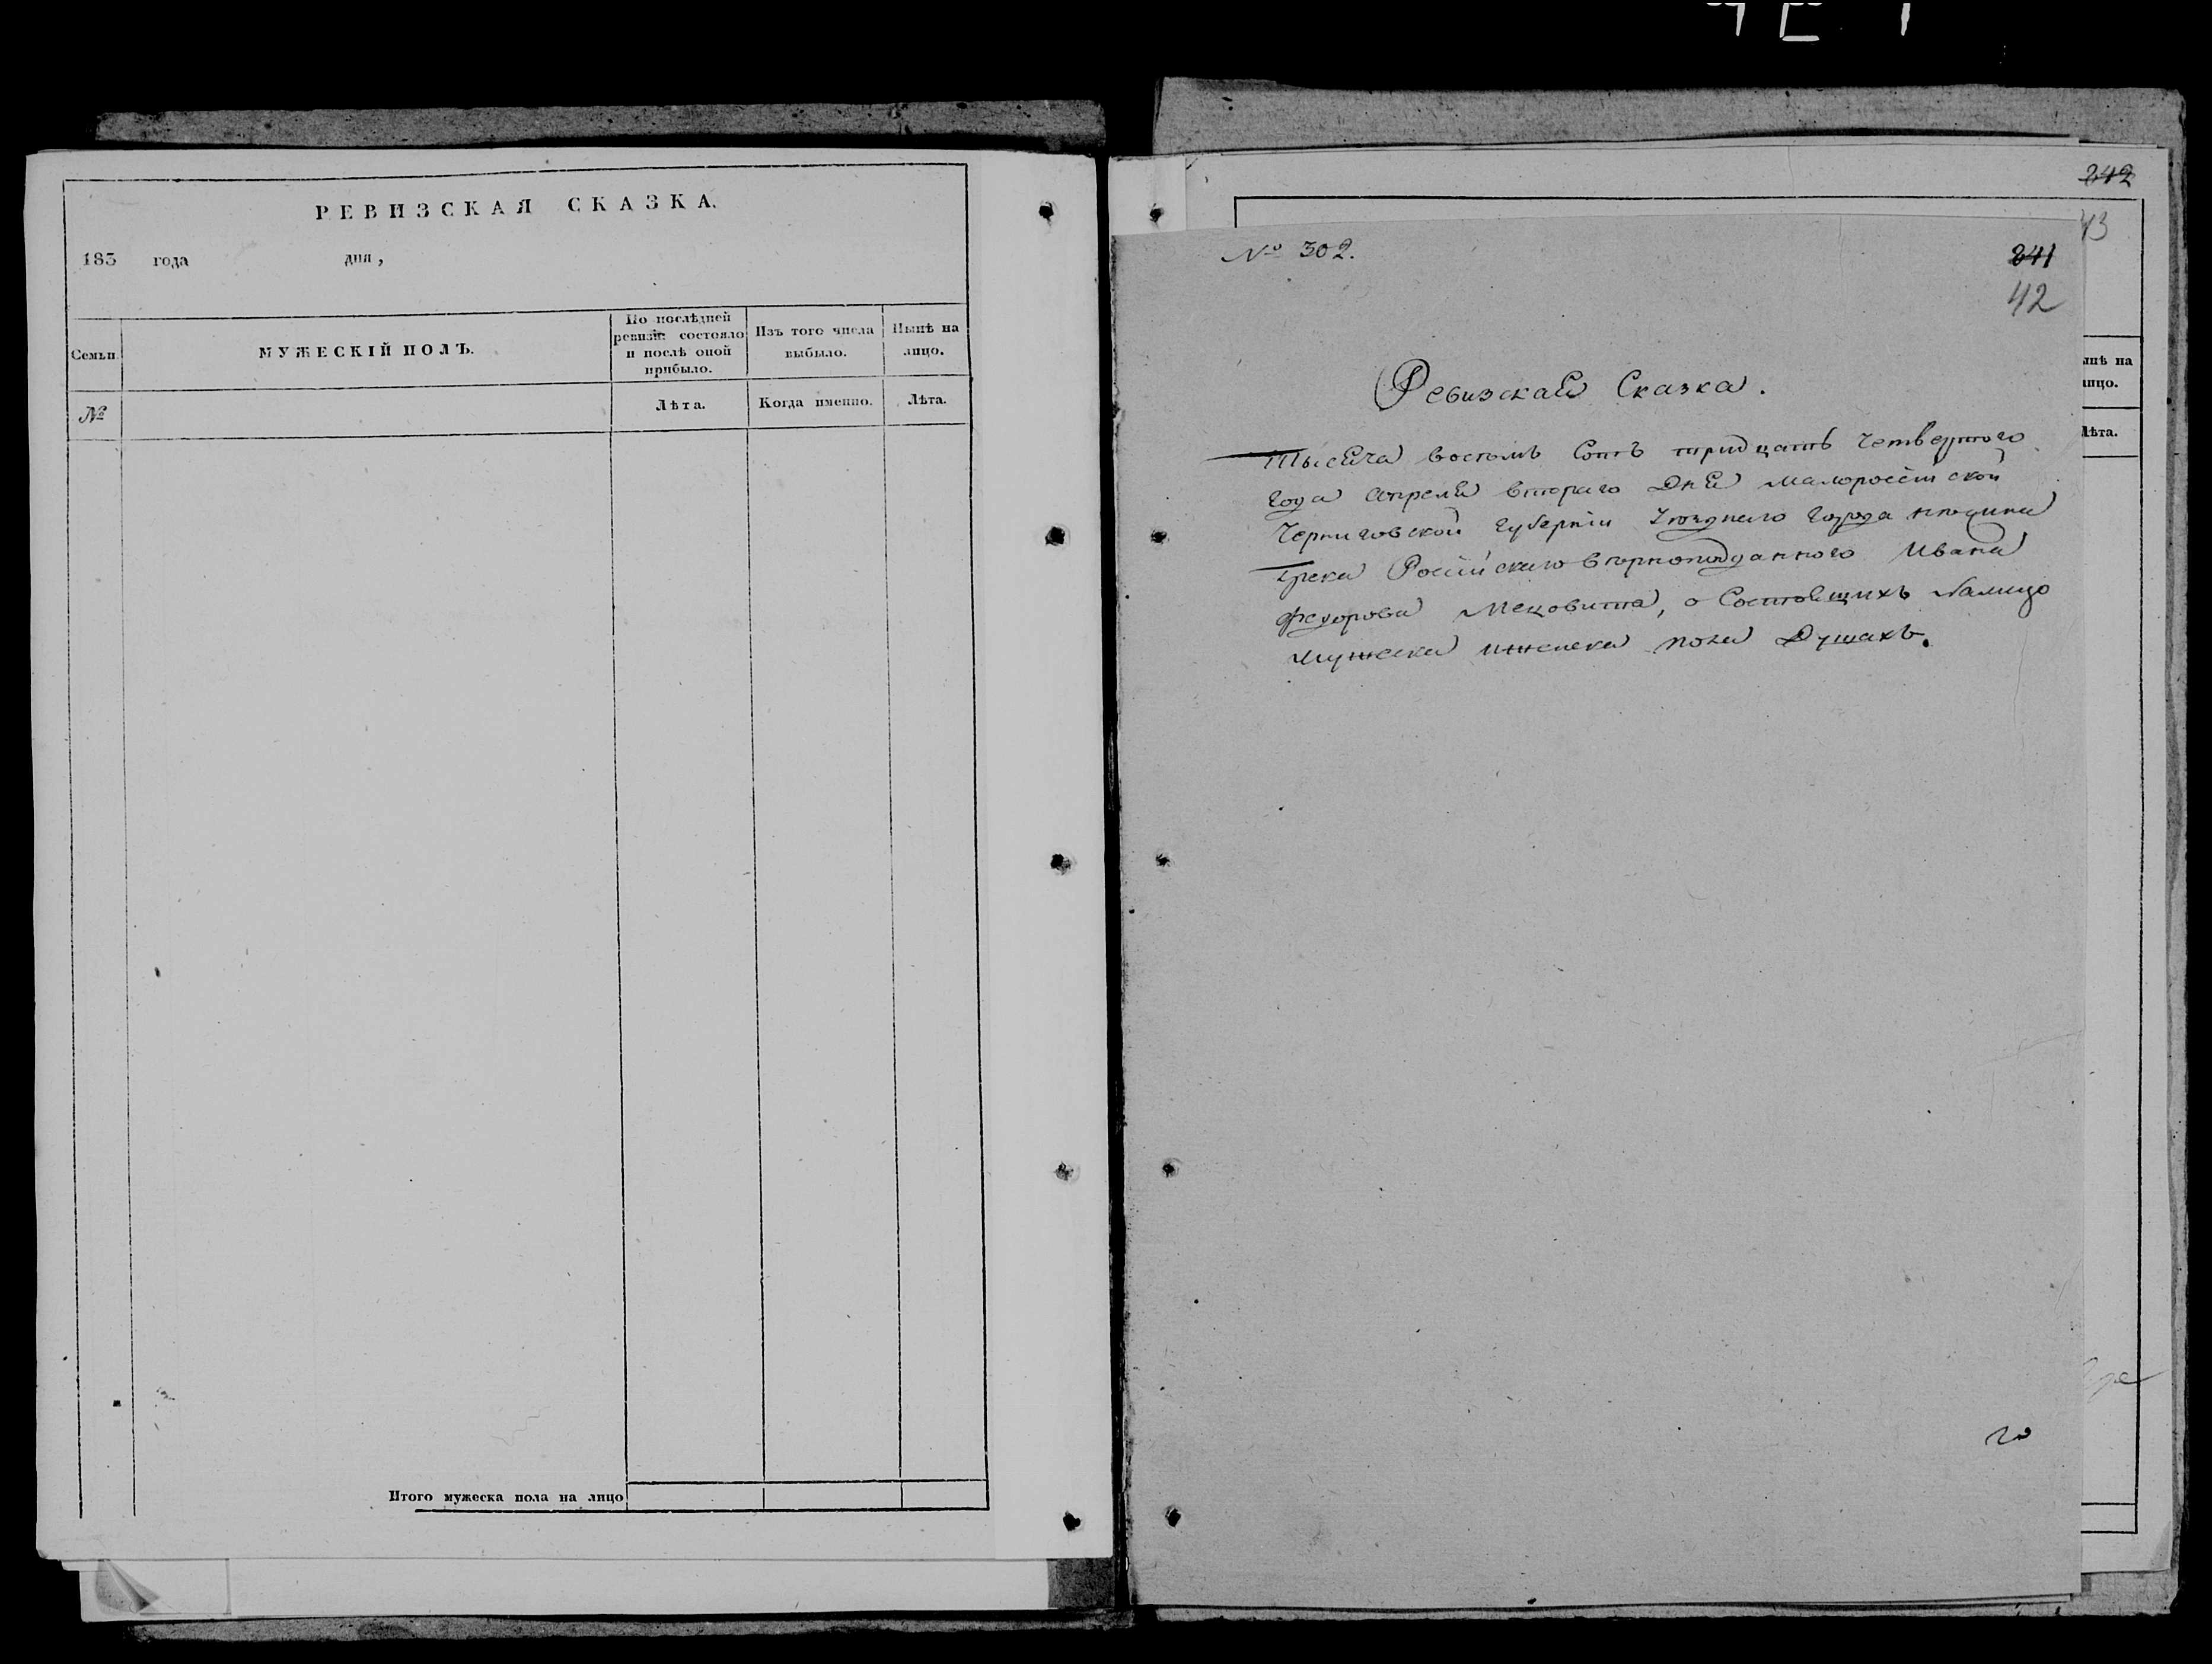 РЕВИЗСКАЯ СКАЗКА.
183 года дня,
Семьи.
МУЖЕСКІЙ ПОЛЪ.
По послѣдней
ревизіи состояло
и послѣ оной
прибыло.
Изъ того числа
выбыло.
Нынѣ на
лицо.
№
Лѣта.
Когда именно.
Лѣта.
Итого мужеска пола на лицо
242
43
№ 302.
241
42
Ревизская Сказка.
Тысяча восемь Сотъ тридцать четвертого
года апреля втораго Дня Малоросійской
Черниговской губерніи уѣзднаго города нѣжина
Грека Російскаго вѣрноподданного Ивана
федорова , о Состоящихъ Налицо
мужеска иженска пола Душахъ.
лицо.
Лѣта.